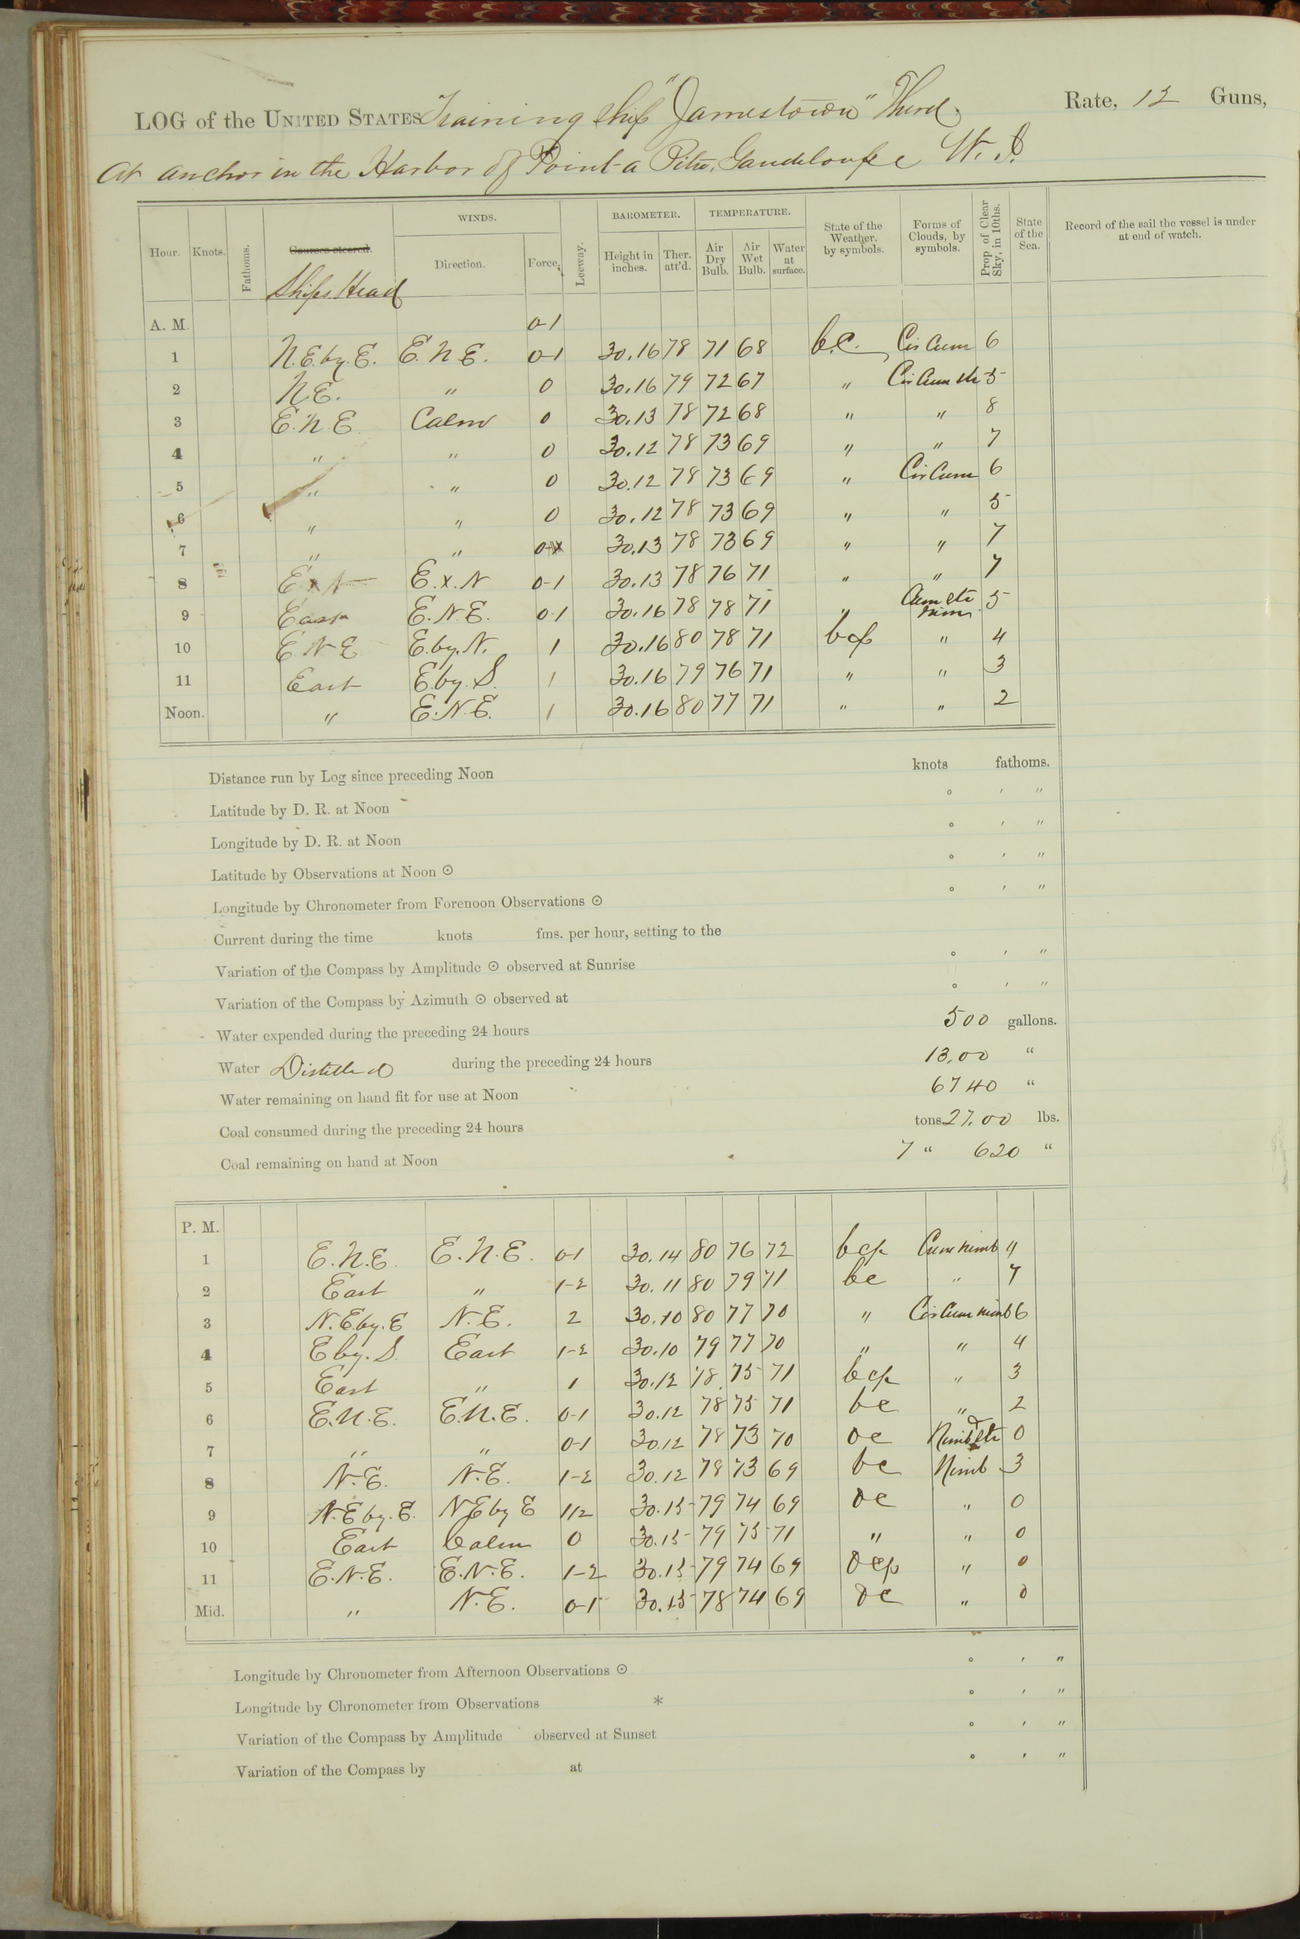 LOG of the UNITED STATES Training Ship "Jamestown" Third Rate, 12 Guns,
At anchor in the Harbor of Point a Pitre, Gaudeloupe W. I.
Hour. Knots. Fathoms. Courses steered. Ships Head WINDS. Direction. Force. Leeway. BAROMETER. Height in inches. Ther. att'd. TEMPERATURE. Air Dry Bulb. Air Wet Bulb. Water at surface. State of the Weather, by symbols. Forms of Clouds, by symbols. Prop. of Clear Sky, in 10ths. State of the Sea. Record of the sail the vessel is under at end of watch.
A. M. 0-1
1 N.E. by. E. E. N. E. 0-1 30.16 78 71 68 b.c. Cir Cum 6
2 N.E. " 0 30.16 79 72 67 " Cir Cum Str 5
3 E. N. E. Calm 0 30.13 78 72 68 " " 8
4 " " 0 30.12 78 73 69 " " 7
5 " " 0 30.12 78 73 69 " Cir Cum 6
6 " " 0 30.12 78 73 69 " " 5
7 " " 0 30.13 78 73 69 " " 7
8 E x N E. x. N 0-1 30.13 78 76 71 " " 7
9 East E. N. E. 0-1 30.16 78 78 71 " Cum Str Nim 5
10 E N E E. by. N. 1 30.16 80 78 71 bcp " 4
11 East E. by. S. 1 30.16 79 76 71 " " 3
Noon. " E. N. E. 1 30.16 80 77 71 " " 2
Distance run by Log since preceding Noon knots fathoms.
Latitude by D. R. at Noon ° ' "
Longitude by D. R. at Noon ° ' "
Latitude by Observations at Noon ☉ ° ' "
Longitude by Chronometer from Forenoon Observations ☉ ° ' "
Current during the time knots fms. per hour, setting to the
Variation of the Compass by Amplitude ☉ observed at Sunrise ° ' "
Variation of the Compass by Azimuth ☉ observed at ° ' "
Water expended during the preceding 24 hours 500 gallons.
Water Distilled during the preceding 24 hours 13,00 "
Water remaining on hand fit for use at Noon 6740 "
Coal consumed during the preceding 24 hours tons 27,00 lbs.
Coal remaining on hand at Noon 7 " 620 "
P. M.
1 E. N. E. E. N. E. 0-1 30.14 80 76 72 bcp Cum Nimb 4
2 East " 1-2 30.11 80 79 71 bc " 7
3 N. E by. E N. E. 2 30.10 80 77 70 " Cir Cum Nimb 6
4 E by. S. East 1-2 30.10 79 77 70 " " 4
5 East " 1 30.12 78 75 71 bcp " 3
6 E. N. E. E. N. E. 0-1 30.12 78 75 71 bc " 2
7 " " 0-1 30.12 78 73 70 oc Nimb & Str 0
8 N. E. N. E. 1-2 30.12 78 73 69 bc Nimb 3
9 N. E by. E. N E by E 1/2 30.15 79 74 69 oc " 0
10 East Calm 0 30.15 79 75 71 " " 0
11 E. N. E. E. N. E. 1-2 30.15 79 74 69 ocp " 0
Mid. " N. E. 0-1 30.15 78 74 69 oc " 0
Longitude by Chronometer from Afternoon Observations ☉ ° ' "
Longitude by Chronometer from Observations * ° ' "
Variation of the Compass by Amplitude observed at Sunset ° ' "
Variation of the Compass by at ° ' "